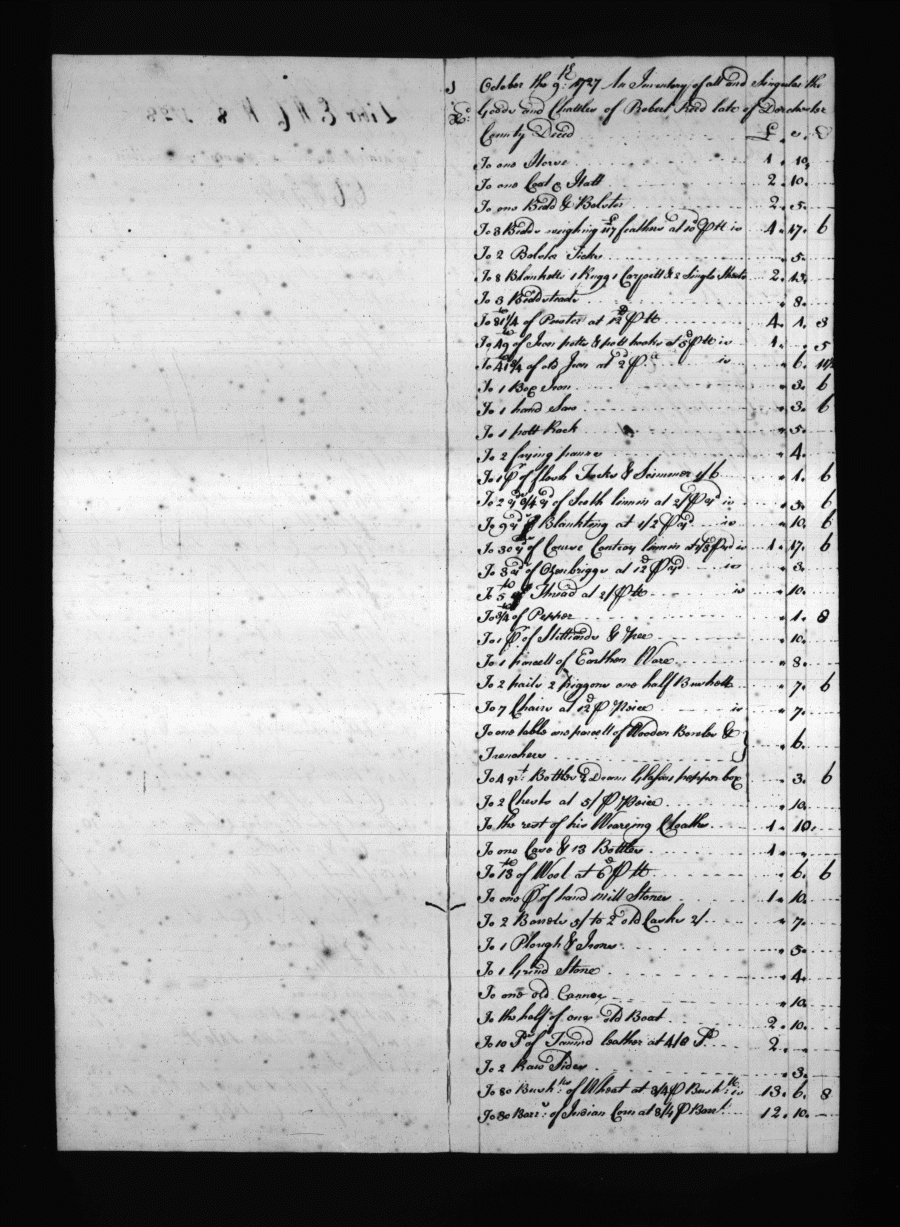 October the 9th: 1727 An Inventory of all and Singular the
Goods and Chattles of Robert Reed late of Dorchester
County Deced £ . s . D
To one Horse 1 . 10 .
To one Coat & Hatt 2 . 10 .
To one Bedd & Bolster 2 . 5 .
To 3 Bedds weighing 117 feathers at 10d ℔ is 4 . 17 . 6
To 2 Bolster Ticks " . 5 .
To 8 Blanketts 1 Rugg 1 Carpitt & 2 Single Sheets 2 . 13 .
To 3 Beddsteads " . 8 .
To 81 1/4 of Pewter at 12d ℔ 4 . 1 . 3
To 49 of Iron potts & pott hooks at 5d ℔ is 1 . " . 5
To 41 3/4 of old Iron at 2d is " . 6 . 11 1/2
To 1 Box Iron " . 3 . 6
To 1 hand Saw " . 3 . 6
To 1 pott Rack " . 5 .
To 2 frying panns " . 4 .
To 1 pr of flesh Forks & Scimmer 1/6 " . 1 . 6
To 2 3/4 yd of Scotch linnin at 2/ P yd is " . 5 . 6
To 9 yd of Blankting at 1/2 P yd is " . 10 . 6
To 30 yd of Course Contrey linnin at 1/3 P yd is 1 . 17 . 6
To 3 yd of Ozenbriggs at 12d P yd is " . 3 .
To 5 of Thread at 2/ P ℔ is " . 10 .
To 3/4 of Pepper " . 1 . 8
To 1 pr of Stilliards & Pee " . 10 .
To 1 parcell of Earthen Ware " . 8 .
To 2 pails 2 piggons one half Bushell " . 7 . 6
To 7 Chairs at 12d P Peice is " . 7 .
To one table one parcell of Wooden Bowles &
Trenchers " . 6 .
To 4 qrt: Bottles 2 Dram Glasses pepper box " . 3 . 6
To 2 Chests at 5/ P Peice " . 10 .
To the rest of his Wearing Cloaths 1 . 10 .
To one Case & 13 Bottles 1 . " .
To 13 of Wool at 6d P ℔ " . 6 . 6
To one pr of hand mill Stones 1 . 10 .
To 2 Barrels 5/ to 2 old Casks 2/ " . 7 .
To 1 Plough & Irons " . 5 .
To 1 Grind Stone " . 4 .
To one old Cannoe " . 10 .
To the half of one old Boat 2 . 10 .
To 10 Ps of Tannd leather at 4/0 P 2 . " .
To 2 Raw Sides " . 3 .
To 80 Bushlls: of Wheat at 3/4 P Bushll: is 13 . 6 . 8
To 30 Barrs: of Indian Corn at 8/4 P Barrl 12 . 10 .